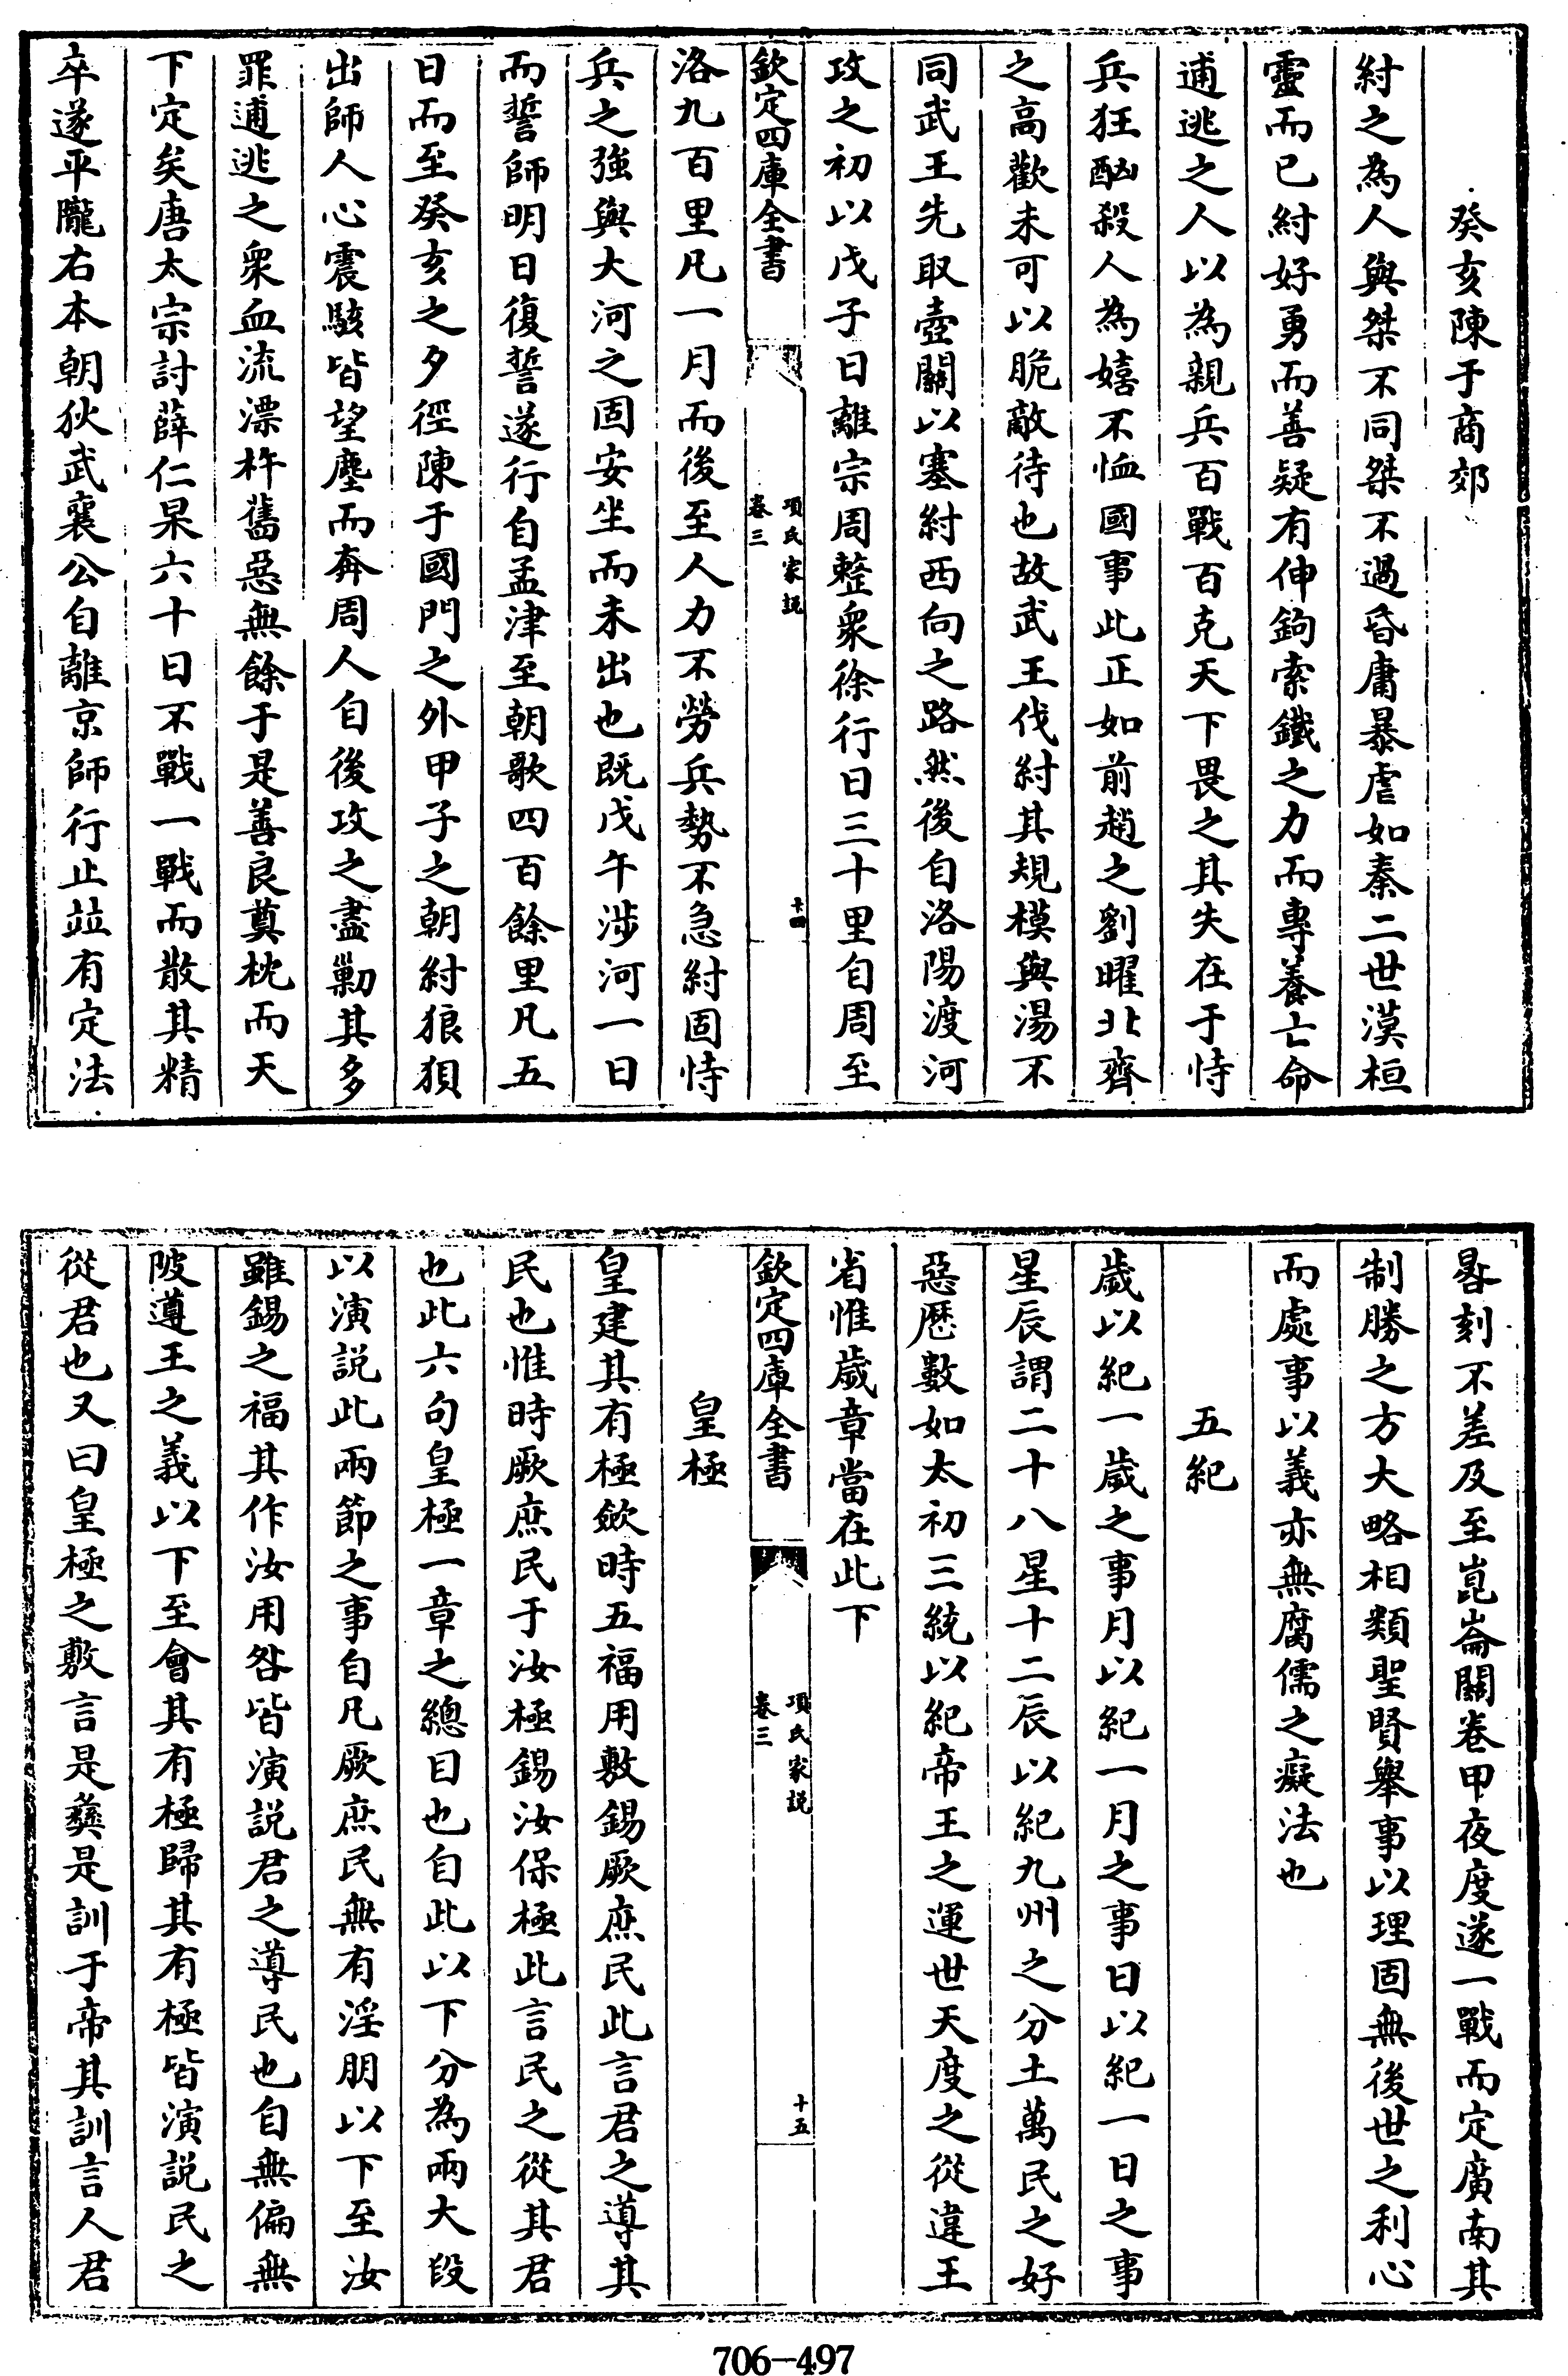 癸亥陳于商郊
紂之為人與桀不同桀不過昏庸暴虐如秦二世漢桓
靈而已紂好勇而善疑有伸鉤索鐵之力而專養亡命
逋逃之人以為親兵百戰百克天下畏之其失在于恃
兵狂酗殺人為嬉不恤國事此正如前趙之劉曜北齊
之高歡未可以脆敵待也故武王伐紂其規模與湯不
同武王先取壺關以塞紂西向之路然後自洛陽渡河
攻之初以戊子日離宗周整衆徐行日三十里自周至
欽定四庫全書
項氏家說
卷三
十四
洛九百里凡一月而後至人力不勞兵勢不急紂固恃
兵之強與大河之固安坐而未出也既戊午渉河一日
而誓師明日復誓遂行自孟津至朝歌四百餘里凡五
日而至癸亥之夕徑陳于國門之外甲子之朝紂狼狽
出師人心震駭皆望塵而奔周人自後攻之盡勦其多
罪逋逃之衆血流漂杵舊惡無餘于是善良奠枕而天
下定矣唐太宗討薛仁杲六十日不戰一戰而散其精
卒遂平隴右本朝狄武襄公自離京師行止竝有定法
晷刻不差及至崑崙關卷甲夜度遂一戰而定廣南其
制勝之方大略相類聖賢舉事以理固無後世之利心
而處事以義亦無腐儒之癡法也
五紀
歲以紀一歲之事月以紀一月之事日以紀一日之事
星辰謂二十八星十二辰以紀九州之分土萬民之好
惡厯數如太初三統以紀帝王之運世天度之從違王
省惟歲章當在此下
欽定四庫全書
項氏家說
卷三
十五
皇極
皇建其有極斂時五福用敷錫厥庶民此言君之導其
民也惟時厥庶民于汝極錫汝保極此言民之從其君
也此六句皇極一章之總目也自此以下分為兩大段
以演説此兩節之事自凡厥庶民無有淫朋以下至汝
雖錫之福其作汝用咎皆演説君之導民也自無偏無
陂遵王之義以下至會其有極歸其有極皆演説民之
從君也又曰皇極之敷言是彝是訓于帝其訓言人君
706-497